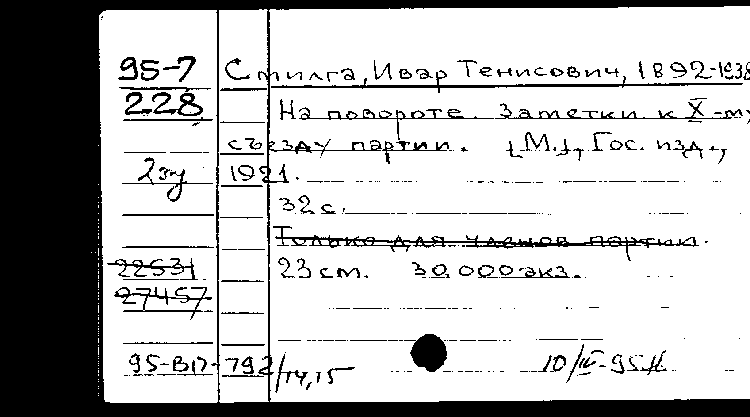 95-7 Стилга, Ивар Тенисович, 1892-1938
228 На повороте. Заметки к X-му
съезду партии. [М.], Гос. изд.,
2эу 1921.
32 с.
Только для членов партии.
22531 23 см. 30.000 экз.
27457
95-ВП-792/14,15 10/III-95